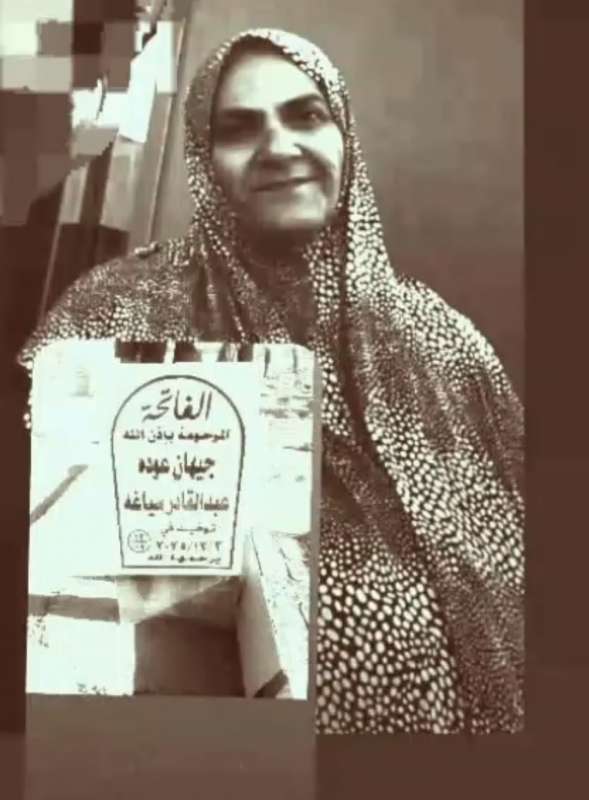 الفاتحة
المرحومة بإذن الله
جيهان عوده
عبدالقادر صياغه
توفيت في
٢٠٢٥/١٢/٢
يرحمها الله